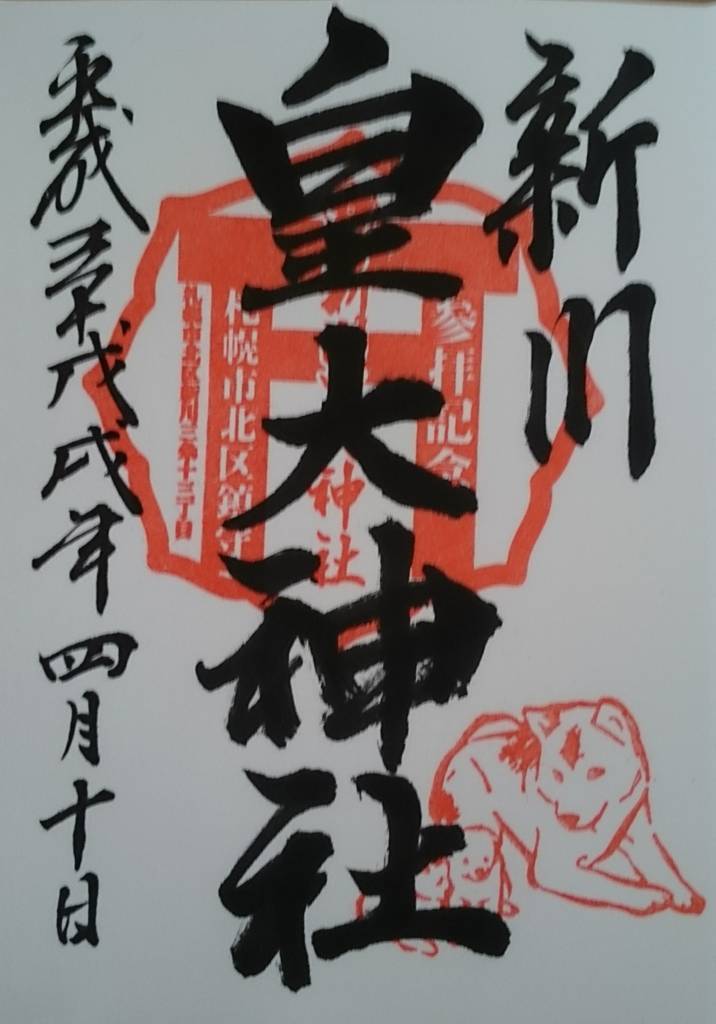 新川
皇大神社
平成三十戊戌年四月十日
参拝記念
神社
札幌市北区鎮守
札幌市北区新川三条十三丁目